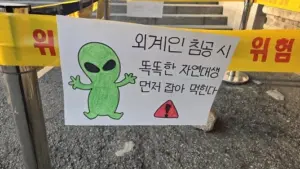 위험
외계인 침공 시
똑똑한 자연대생
먼저 잡아 먹힌다
위험